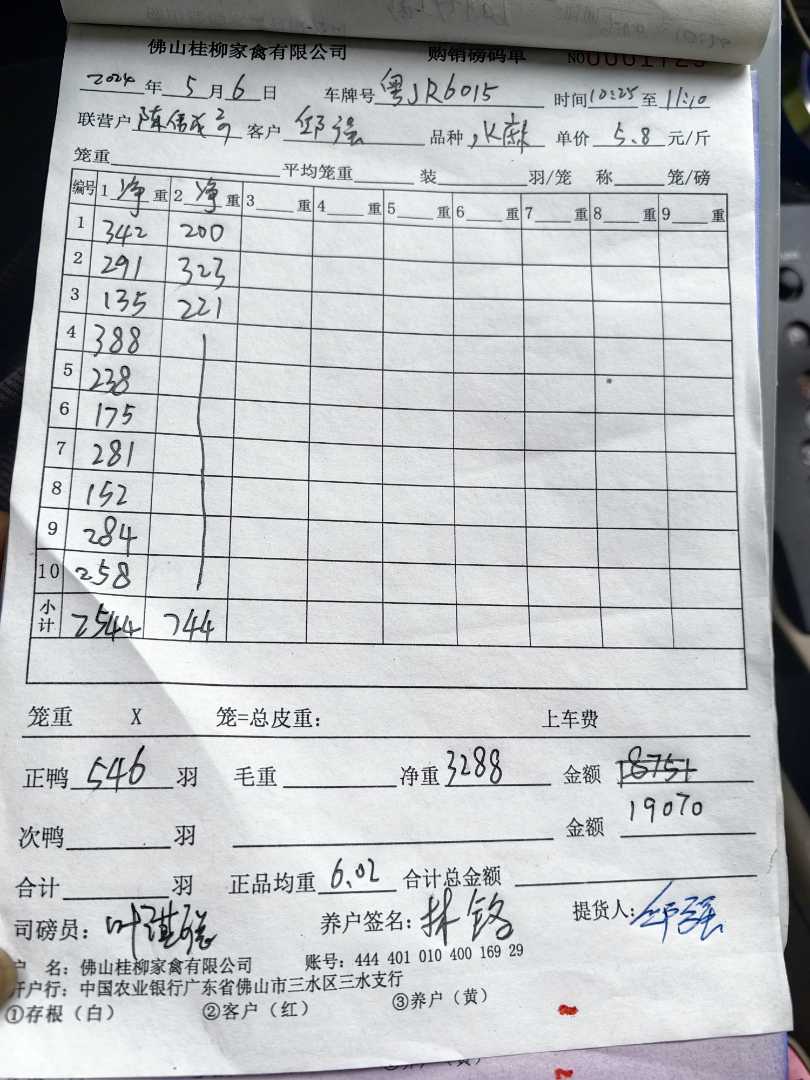 佛山桂柳家禽有限公司 购销磅码单 NO0001725
2024 年 5 月 6 日 车牌号 粤JR6015 时间 10:25 至 11:10
联营户 陈伟成 客户 邱强 品种 麻 单价 5.8 元/斤
笼重 平均笼重 装 羽/笼 称 笼/磅
编号 1 净 重 2 净 重 3 重 4 重 5 重 6 重 7 重 8 重 9 重
1 342 200
2 291 323
3 135 221
4 388
5 238
6 175
7 281
8 152
9 284
10 258
小计 2544 744
笼重 X 笼=总皮重: 上车费
正鸭 546 羽 毛重 净重 3288 金额 18751
次鸭 羽 金额 19070
合计 羽 正品均重 6.02 合计总金额
司磅员: 叶琪聪 养户签名: 林铭 提货人: 邱强
户 名: 佛山桂柳家禽有限公司 账号: 444 401 010 400 169 29
开户行: 中国农业银行广东省佛山市三水区三水支行
①存根(白) ②客户(红) ③养户(黄)